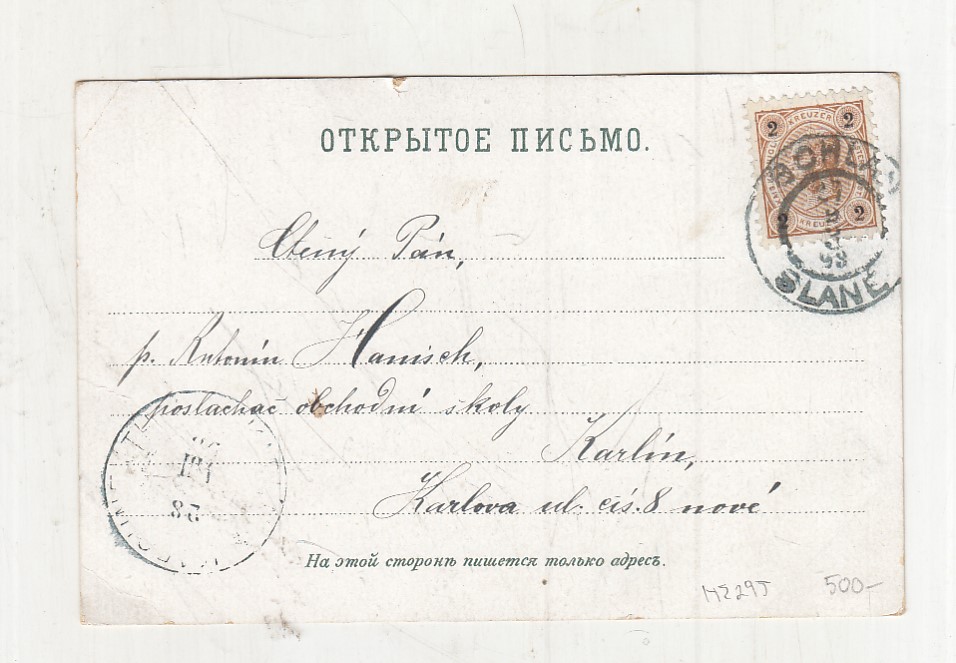 ОТКРЫТОЕ ПИСЬМО.
2 KREUZER 2
2 KREUZER 2
SLANÉ
93
Ctěný Pán,
p. Antonín Hanisch,
posluchač obchodní školy
Karlín,
Karlova ul. čís. 8 nové
На этой сторонѣ пишется только адресъ.
500-